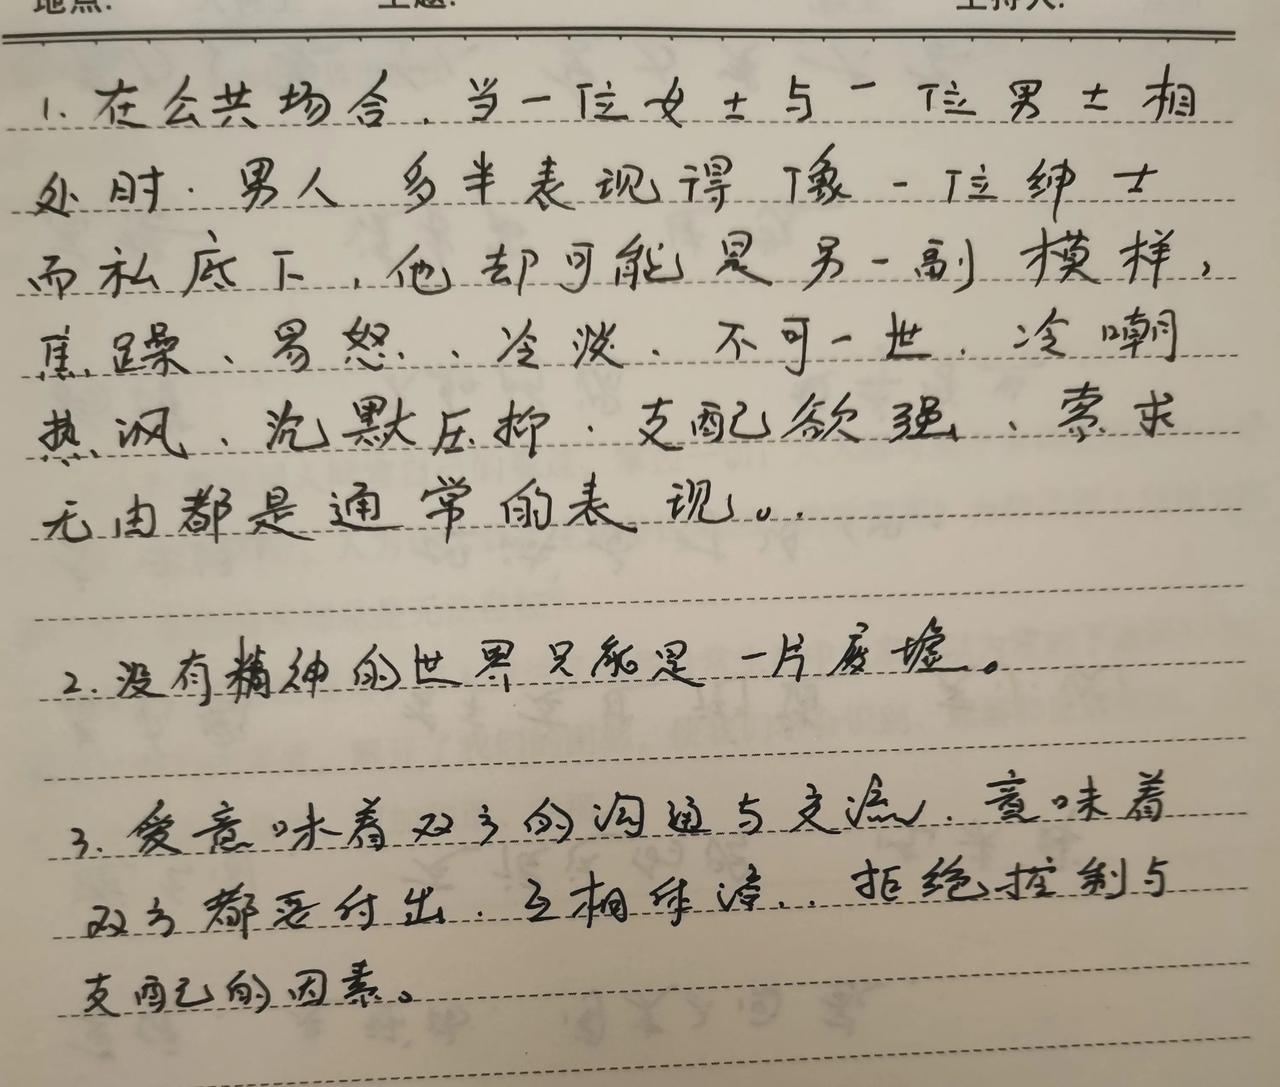 地点: 主题: 主持人:
1. 在公共场合,当一位女士与一位男士相
处时.男人多半表现得像一位绅士
而私底下,他却可能是另一副模样,
焦躁、易怒、、冷淡、不可一世、冷嘲
热讽、沉默压抑、支配欲强、索求
无由都是通常的表现。.
2. 没有精神的世界只能是一片废墟。
3. 爱意味着双方的沟通与交流.意味着
双方都要付出.互相体谅..拒绝控制与
支配的因素。